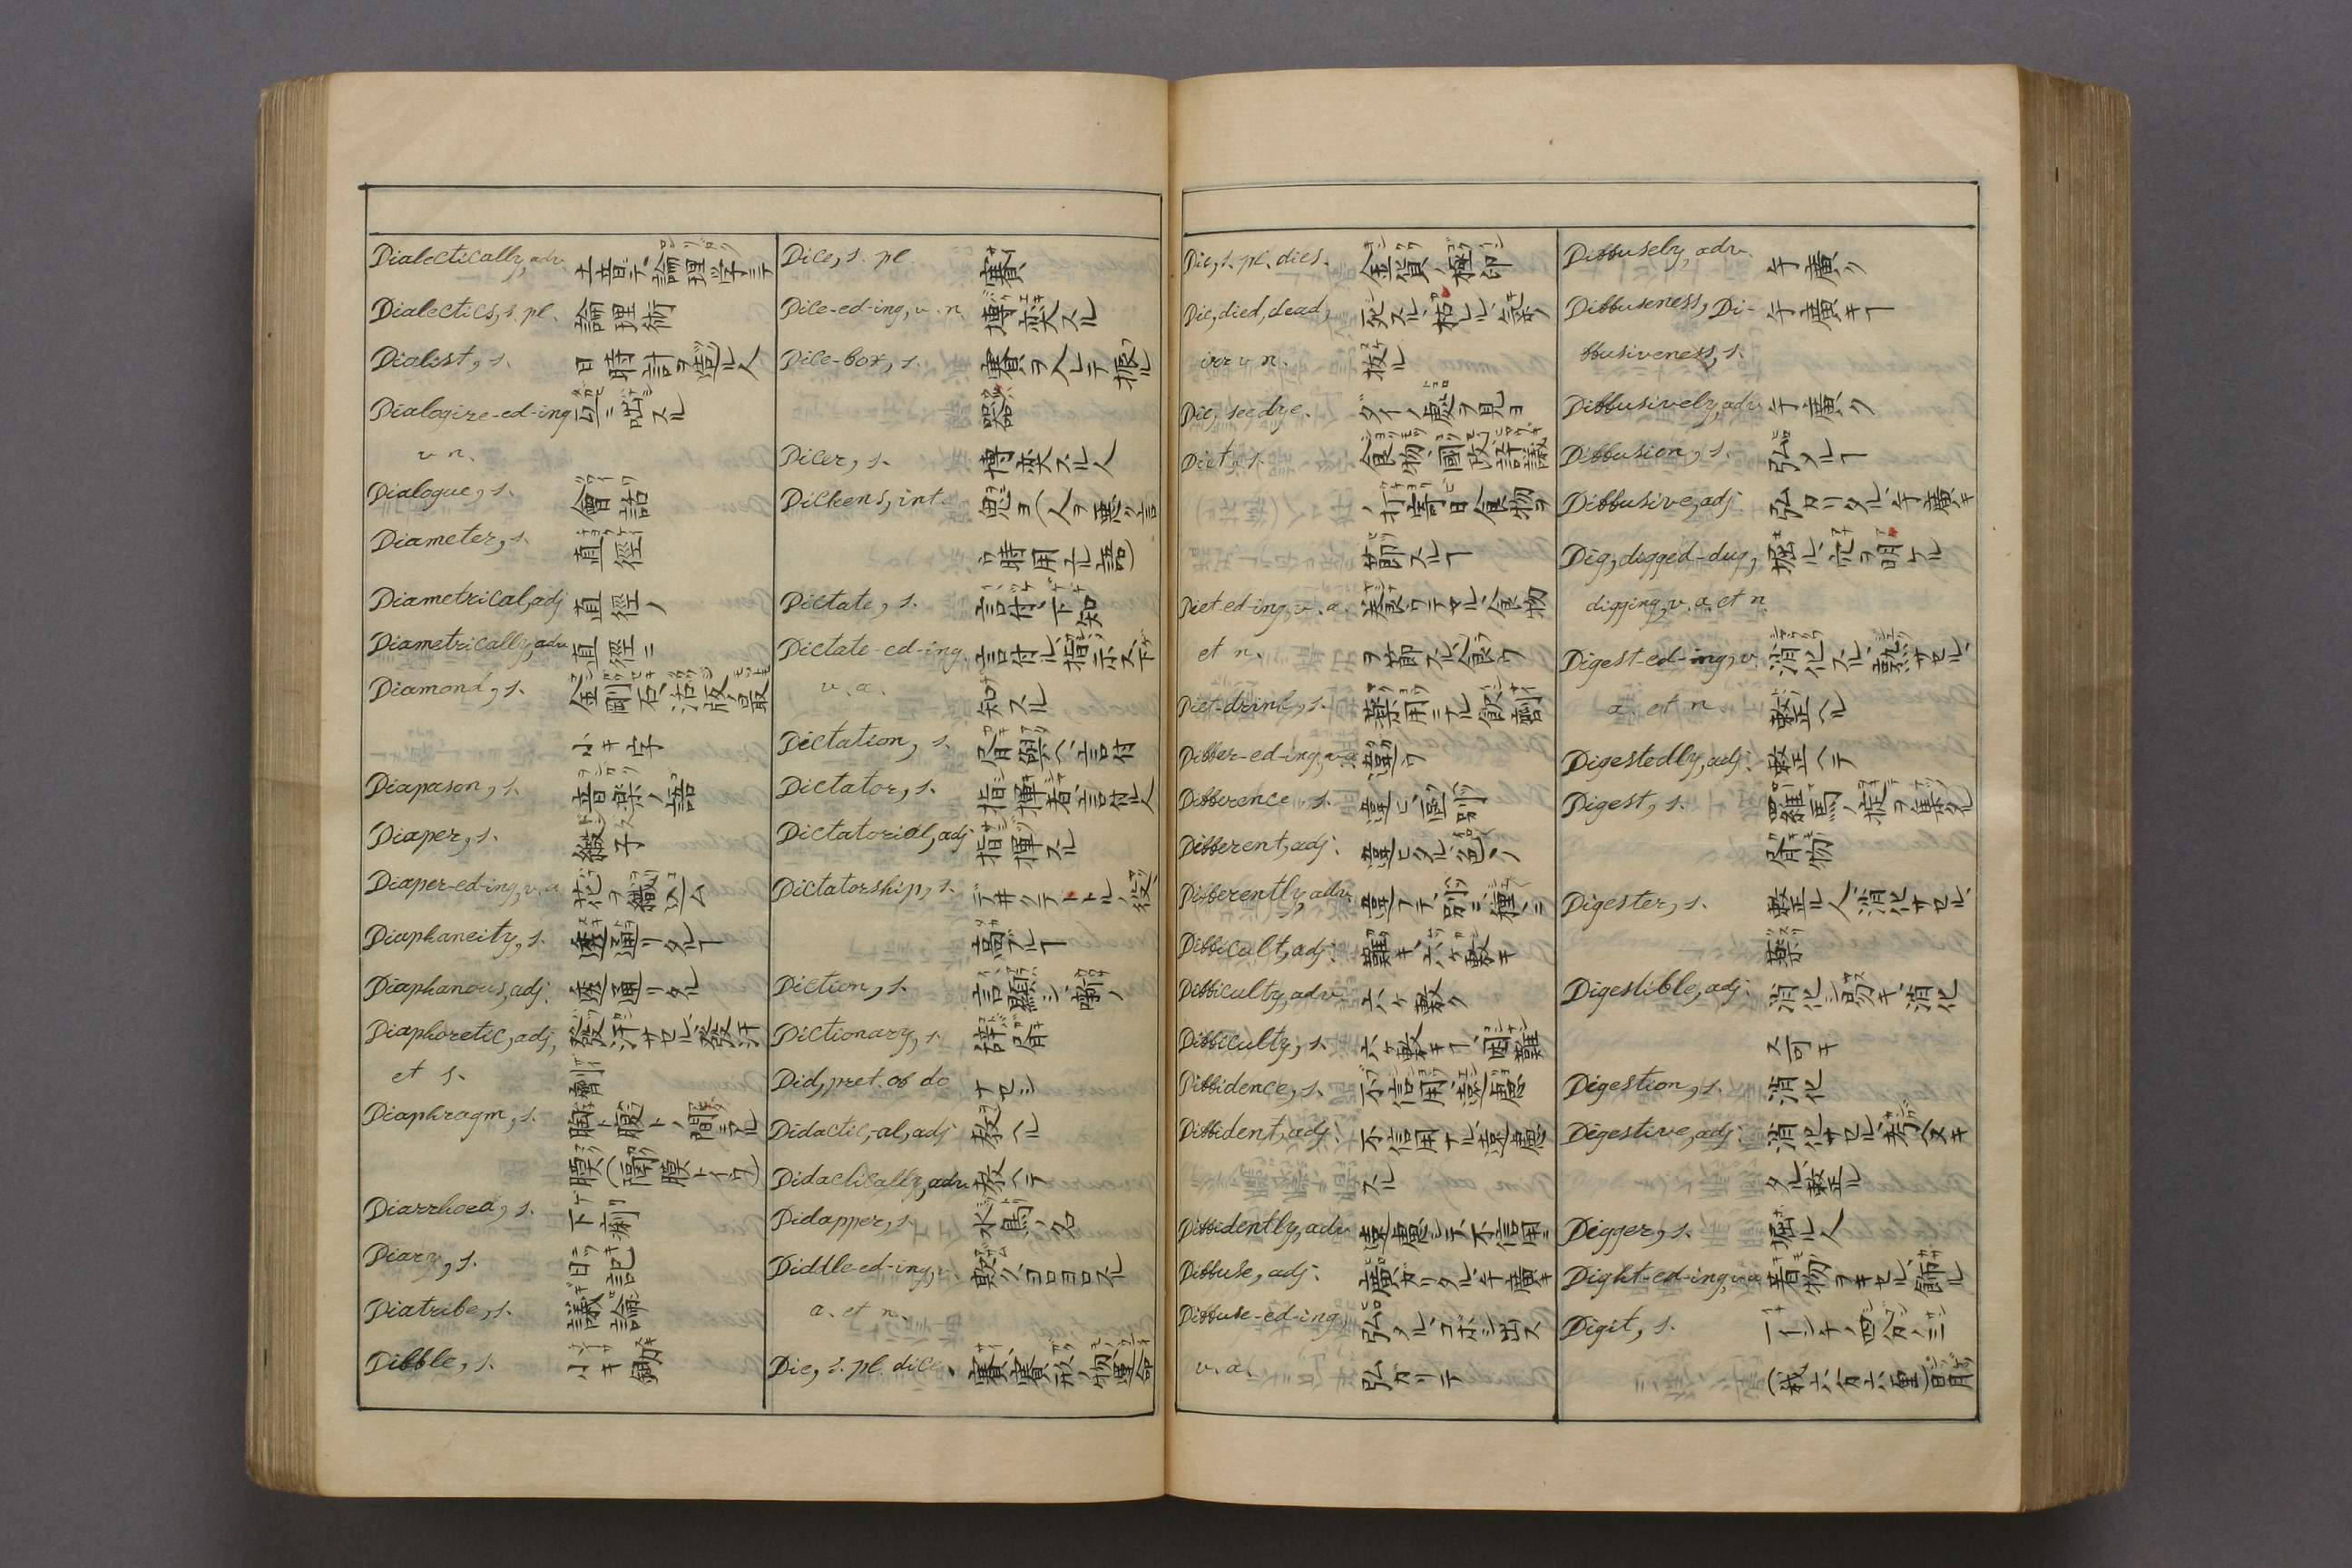 Dialectically, adv. 土音デ、論理学ニテ
Dialectics, s. pl. 論理術
Dialist, s. 日時計ヲ造ル人
Dialogize-ed-ing
v n.
Dialogue, s. 會話
Diameter, s. 直徑
Diametrical, adj 直徑ノ
Diametrically, adv 直徑ニ
Diamond, s. 金剛石、活版ノ最
小キ字
Diapason, s. 音楽ノ語
Diaper, s. 緞子
Diaper-ed-ing, v. a
Diaphaneity, s. 透通リタルヿ
Diaphanous, adj. 透通リタル
Diaphoretic, adj, 發汗サセル、發汗
et s. 劑
Diaphragm, s. 胸ト腹トノ間ニアル
膜(隔膜トイウ)
Diarrhoea, s. 下痢
Diary, s. 日記
Diatribe, s. 議論
Dibble, s. 小キ鋤
Dice, s. pl. 賽
Dice-ed-ing, v. n 博奕スル
Dice-box, s. 賽ヲ入レテ振ル
器
Dicer, s. 博奕スル人
Dickens, int. 鬼ヨ(人ヲ悪ク言
ウ時用ユル語)
Dictate, s. 言付、下知
Dictate-ed-ing 言付ル、指示ス、下
v. a. 知スル
Dictation, s.
Dictator, s. 指揮者、言付ル人
Dictatorial, adj 指揮スル
Dictatorship, s.
高ブルヿ
Diction, s.
Dictionary, s. 辞書
Did, pret. of do ナセシ
Didactic,-al, adj 教ヘル
Didactically, adv 教ヘテ
Didapper, s. 水鳥ノ名
Diddle-ed-ing, v.
a. et n.
Die, s. pl. dice.
Die, s. pl. dies. 金貨ノ極印
Die, died, dead, 死スル、枯レル、氣ノ
irr v n. 抜ケル
Die, see dye. ダイノ處ヲ見ヨ
Diet, s. 食物、國政評議
節スルヿ
Diet-ed-ing, v. a. 養ウテヤル、食物
et n. ヲ節スル、食ウ
Diet-drink, s. 薬用ニナル飲劑
Differ-ed-ing, v. n 違ウ
Difference, s. 違ヒ、區別
Different, adj. 違ヒタル、色々ノ
Differently, adv. 違フテ、別ニ、種々ニ
Difficult, adj. 難キ、六ケ敷キ
Difficulty, adv. 六ケ敷ク
Difficulty, s. 六ケ敷キヿ、困難
Diffidence, s. 不信用、遠慮
Diffident, adj. 不信用ナル、遠慮
スル
Diffidently, adv 遠慮シテ、不信用ニ
Diffuse, adj. 廣ガリタル、手廣キ
Diffuse-ed-ing, 弘メル、コボシ出ス
v. a. 弘ガリテ
Diffusely, adv. 手廣ク
Diffuseness, Di- 手廣キヿ
ffusiveness, s.
Diffusively, adv 手廣ク
Diffusion, s. 弘メルヿ
Diffusive, adj. 弘カリタル、手廣キ
Dig, digged-dug, 掘ル、穴ヲ明ケル
digging, v. a. et n.
Digest-ed-ing, v. 消化スル、熟サセル、
a. et n. 整ヘル
Digestedly, adj. 整ヘテ
Digest, s. 羅馬ノ掟ヲ集メル
書物
Digester, s. 整ル人、消化サセル、
薬
Digestible, adj. 消化シ易キ、消化
ス可キ
Digestion, s. 消化
Digestive, adj. 消化サセル、考ヘ分キ
タル、整ル
Digger, s. 掘ル人
Dight-ed-ing, v. a 着物ヲキセル、飾ル
Digit, s. 一インチノ四分ノ三